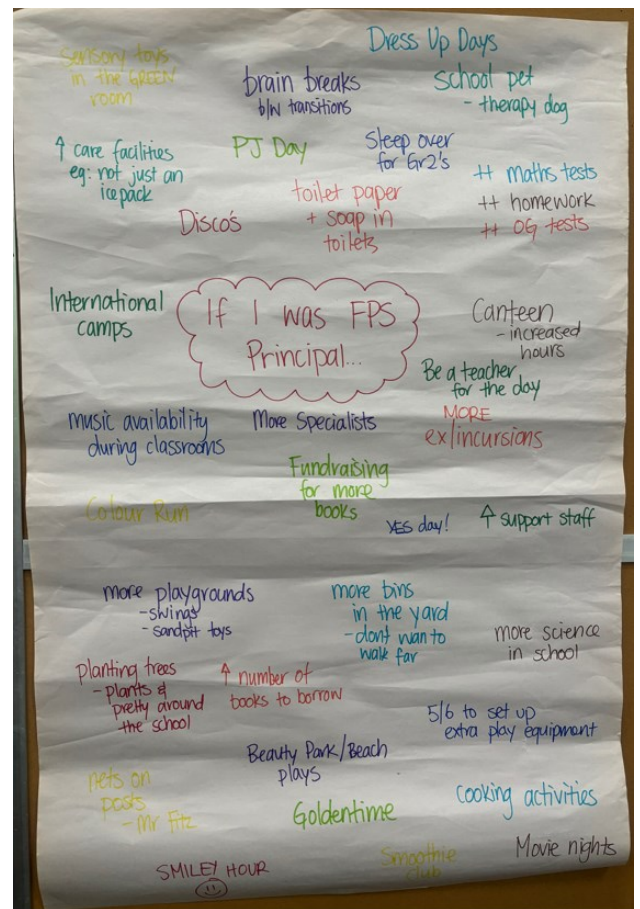 Dress Up Days
Sensory toys
in the GREEN
room
brain breaks
b/w transitions
school pet
- therapy dog
↑ care facilities
eg: not just an
icepack
PJ Day
Sleep over
for Gr2's
++ maths tests
++ homework
++ OG tests
Disco's
toilet paper
+ soap in
toilets
International
camps
If I was FPS
Principal...
Canteen
- increased
hours
Be a teacher
for the day
music availability
during classrooms
More Specialists
MORE
ex/incursions
Fundraising
for more
books
Colour Run
YES day!
↑ support staff
more playgrounds
- swings
- sandpit toys
more bins
in the yard
- dont wan to
walk far
more science
in school
planting trees
- plants &
pretty around
the school
↑ number of
books to borrow
5/6 to set up
extra play equipment
Beauty Park/Beach
plays
nets on
posts
- Mr Fitz
Goldentime
cooking activities
SMILEY HOUR
Smoothie
club
Movie nights